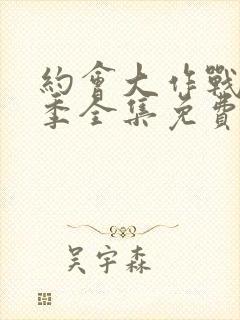 約會大作戰
季全集免費
吴宇森